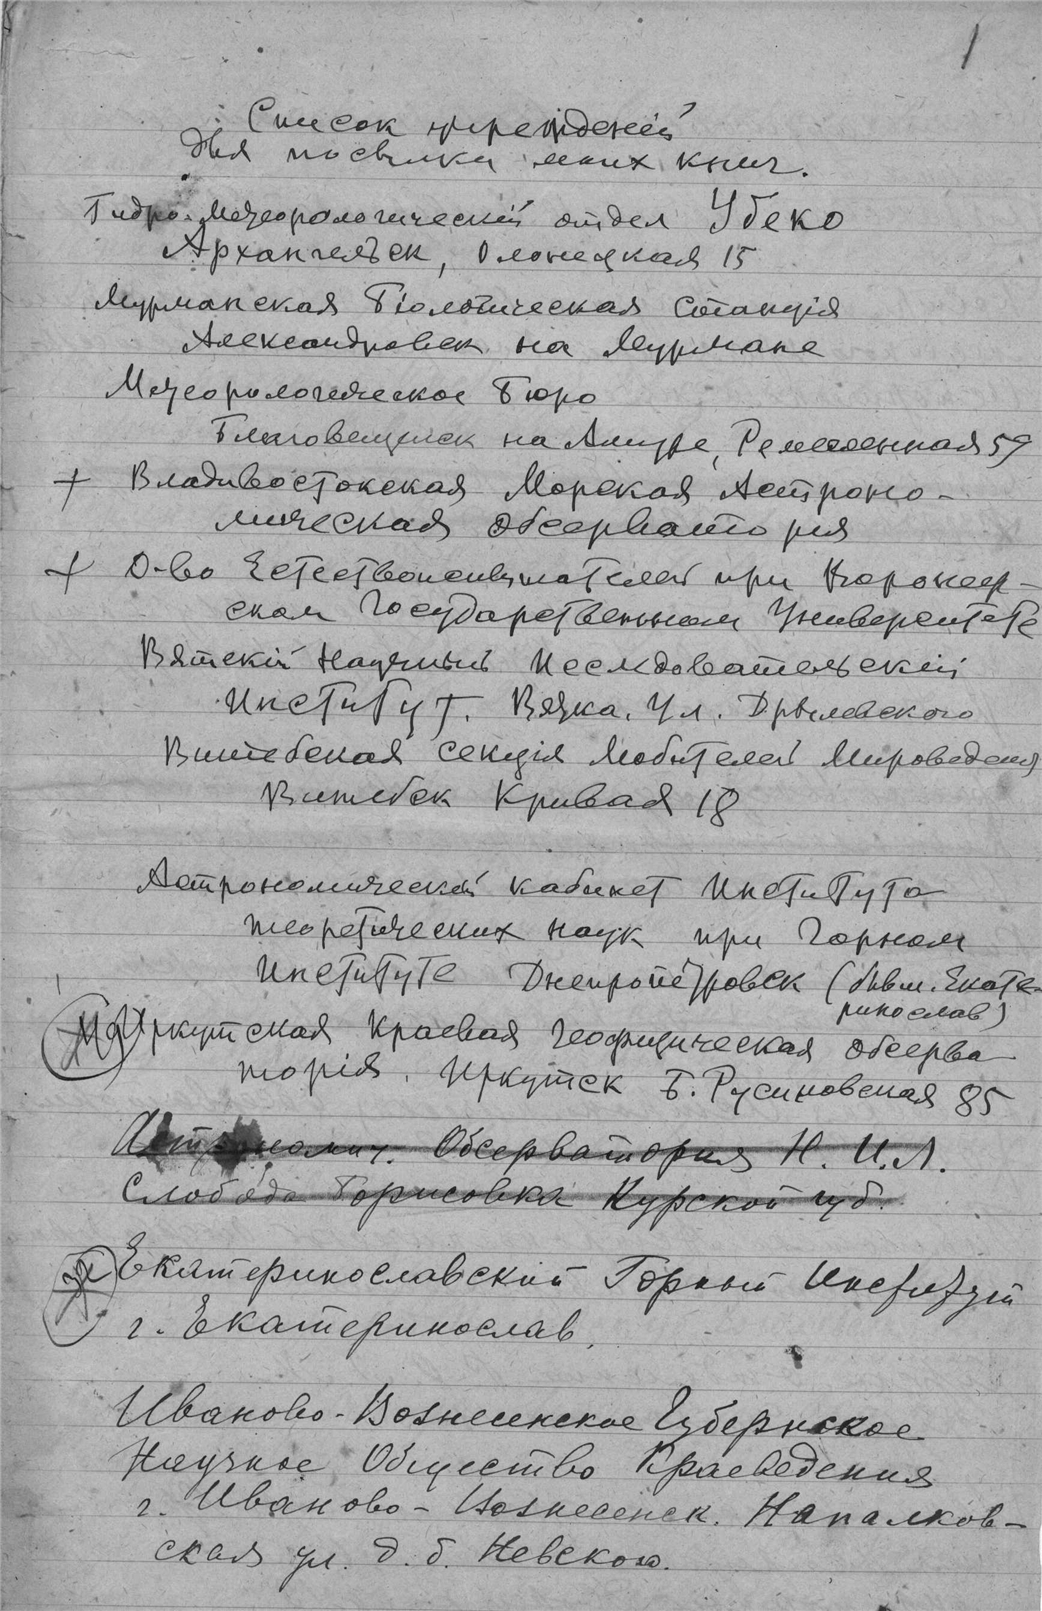 1
Список учреждений
для посылки моих книг.
Гидро-Метеорологический отдел Убеко
Архангельск, Олонецкая 15
Мурманская Біологическая Станція
Александровск на Мурмане
Метеорологическое Бюро
Благовещенск на Амуре, Ремесленная 59
+ Владивостокская Морская Астроно-
мическая обсерватория
+ О-во Естествоиспытателей при Воронеж-
ском Государственном Университете
Вятскій Научный Исследовательский
Институт. Вятка. Ул. Дрылевского
Витебская секція Любителей Мироведения
Витебск Кривая 18
Астрономический кабинет Института
теоретических наук при Горном
Институте Днепропетровск (бывш. Екате-
ринослав)
Иркутская Краевая Геофизическая обсерва-
торія. Иркутск Б. Русиновская 85
Астрономич. Обсерватория Н. И. Л.
Слобода Борисовка Курской губ.
Екатеринославский Горный Институт
г. Екатеринослав.
Иваново-Вознесенское Губернское
Научное Общество Краеведения
г. Иваново-Вознесенск. Напалков-
ская ул. д. б. Невского.